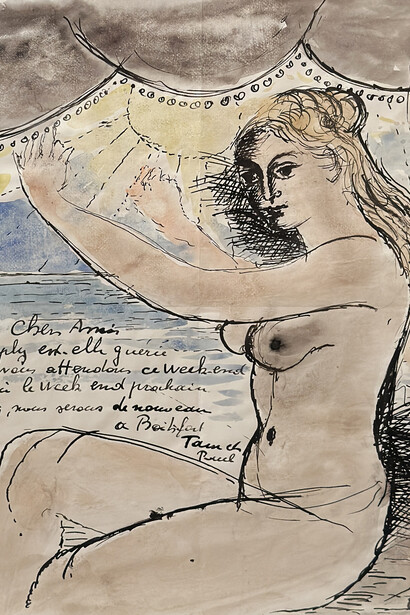 Chers Amis
est-elle guérie
vous attendons ce Weekend
le Week end prochain
nous serons de nouveau
a Boitsfort
Tam et
Paul